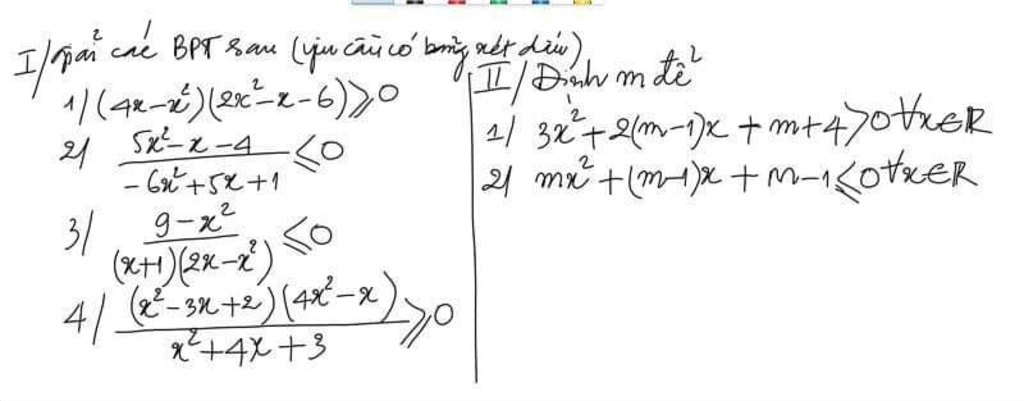 I/ Giải các BPT sau (yêu cầu có bảng xét dấu)
1/ (4x-x²)(2x²-x-6)⩾0
2/ (5x²-x-4)/(-6x²+5x+1) ⩽0
3/ (9-x²)/((x+1)(2x-x²)) ⩽0
4/ ((x²-3x+2)(4x²-x))/(x²+4x+3) ⩾0
II/ Định m để
1/ 3x²+2(m-1)x+m+4>0 ∀x∈R
2/ mx²+(m-1)x+m-1⩽0 ∀x∈R